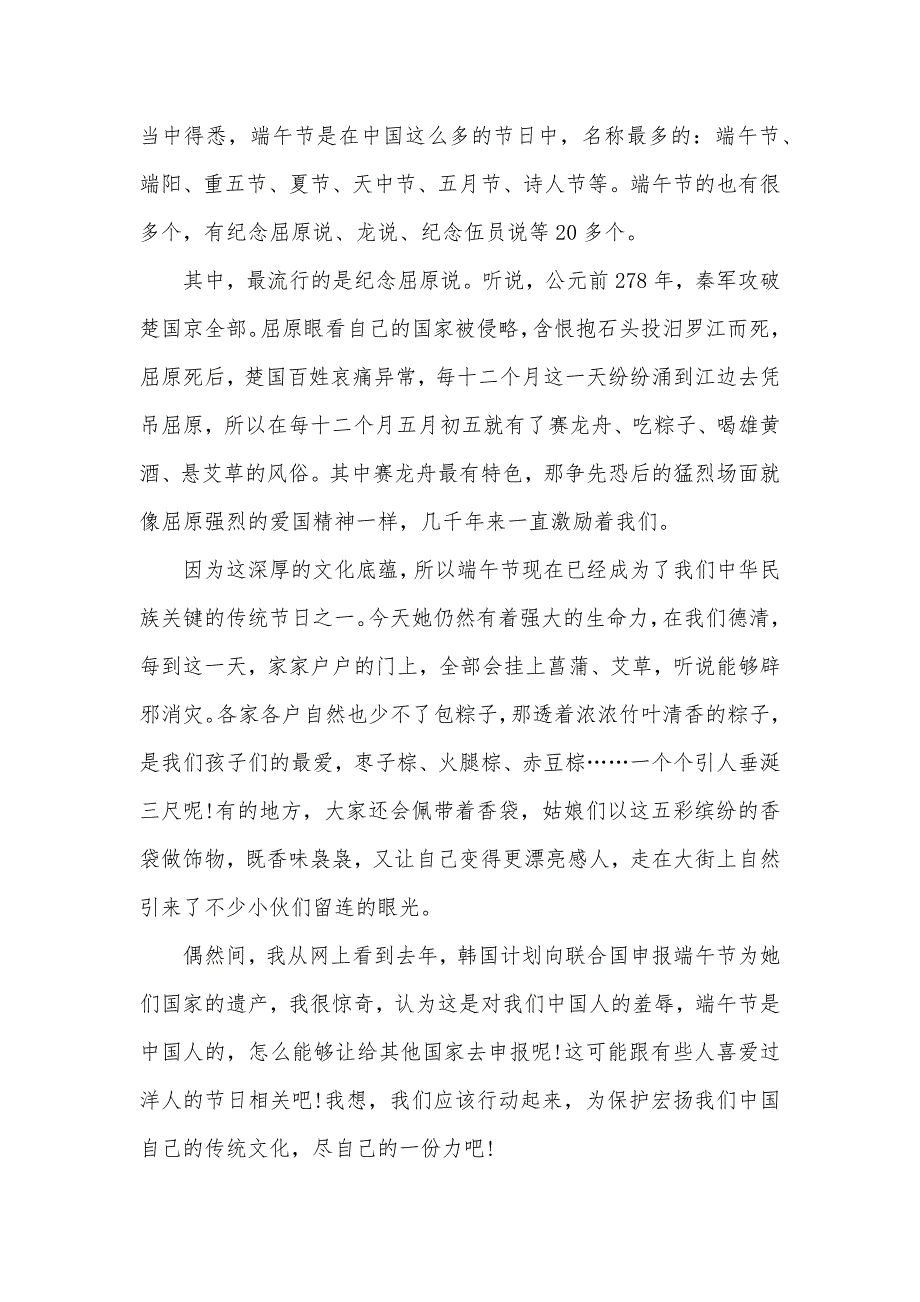 当中得悉，端午节是在中国这么多的节日中，名称最多的：端午节、
端阳、重五节、夏节、天中节、五月节、诗人节等。端午节的也有很
多个，有纪念屈原说、龙说、纪念伍员说等 20 多个。
其中，最流行的是纪念屈原说。听说，公元前 278 年，秦军攻破
楚国京全部。屈原眼看自己的国家被侵略，含恨抱石头投汨罗江而死，
屈原死后，楚国百姓哀痛异常，每十二个月这一天纷纷涌到江边去凭
吊屈原，所以在每十二个月五月初五就有了赛龙舟、吃粽子、喝雄黄
酒、悬艾草的风俗。其中赛龙舟最有特色，那争先恐后的猛烈场面就
像屈原强烈的爱国精神一样，几千年来一直激励着我们。
因为这深厚的文化底蕴，所以端午节现在已经成为了我们中华民
族关键的传统节日之一。今天她仍然有着强大的生命力，在我们德清，
每到这一天，家家户户的门上，全部会挂上菖蒲、艾草，听说能够辟
邪消灾。各家各户自然也少不了包粽子，那透着浓浓竹叶清香的粽子，
是我们孩子们的最爱，枣子棕、火腿棕、赤豆棕……一个个引人垂涎
三尺呢!有的地方，大家还会佩带着香袋，姑娘们以这五彩缤纷的香
袋做饰物，既香味袅袅，又让自己变得更漂亮感人，走在大街上自然
引来了不少小伙们留连的眼光。
偶然间，我从网上看到去年，韩国计划向联合国申报端午节为她
们国家的遗产，我很惊奇，认为这是对我们中国人的羞辱，端午节是
中国人的，怎么能够让给其他国家去申报呢!这可能跟有些人喜爱过
洋人的节日相关吧!我想，我们应该行动起来，为保护宏扬我们中国
自己的传统文化，尽自己的一份力吧!